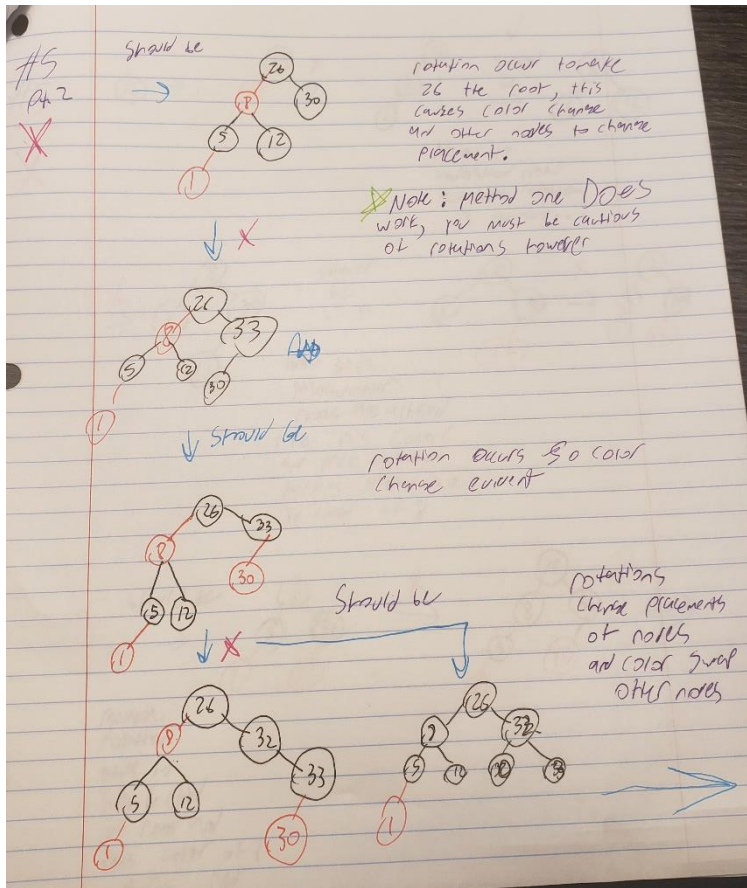 #5
pt. 2
Should be
26
8
30
5
12
1
rotation occur to make
26 the root, this
causes color change
and other nodes to change
placement.
Note: Method one DOES
work, you must be cautious
of rotations however
26
8
33
5
12
30
1
Should be
rotation occurs so color
change evident
26
8
33
30
5
12
1
Should be
rotations
change placements
of nodes
and color swap
other nodes
26
8
32
33
5
12
30
1
26
8
32
5
12
30
33
1